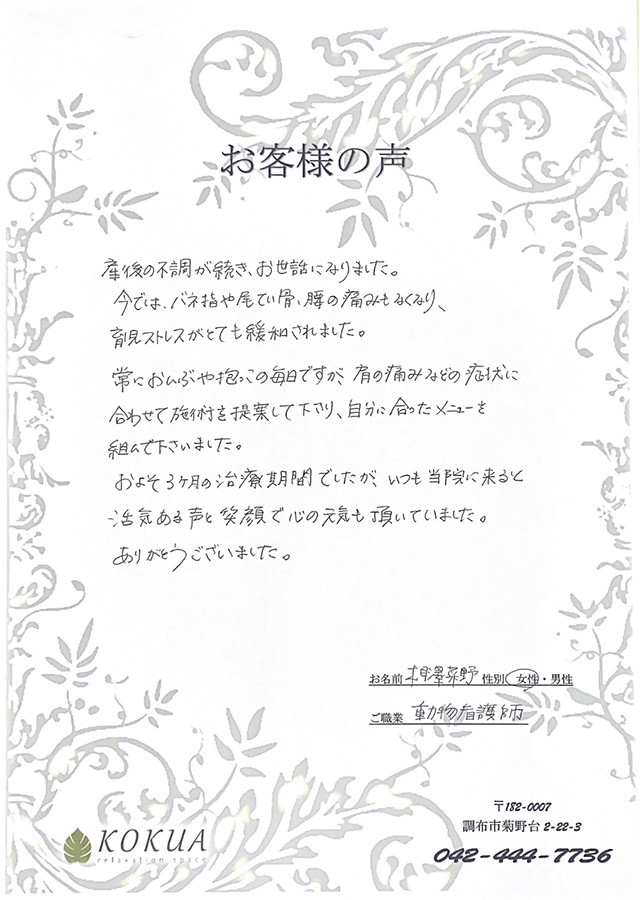 お客様の声
産後の不調が続き、お世話になりました。
今では、バネ指や尾てい骨、腰の痛みもなくなり、
育児ストレスがとても緩和されました。
常におんぶや抱っこの毎日ですが、肩の痛みなどの症状に
合わせて施術を提案して下さり、自分に合ったメニューを
組んで下さいました。
およそ3ヶ月の治療期間でしたが、いつも当院に来ると
活気ある声と笑顔で心の元気も頂いていました。
ありがとうございました。
お名前 相澤菜野 性別 女性・男性
ご職業 動物看護師
〒182-0007
調布市菊野台 2-22-3
042-444-7736
KOKUA
relaxation space